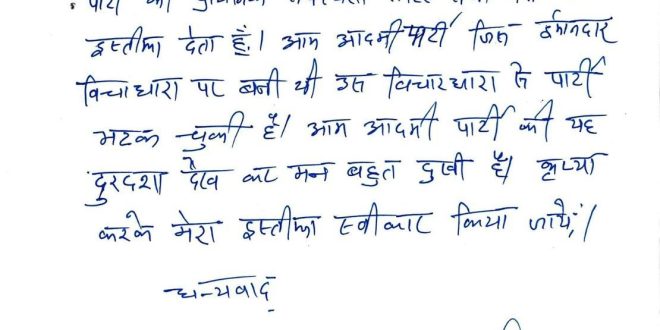 पार्टी की प्राथमिक
इस्तीफा देता हूँ। आम आदमी पार्टी जिस ईमानदार
विचाधारा पर बनी थी उस विचारधारा से पार्टी
भटक चुकी है। आम आदमी पार्टी की यह
दुरदशा देख कर मन बहुत दुखी है। कृप्या
करके मेरा इस्तीफा स्वीकार किया जाये।
धन्यवाद